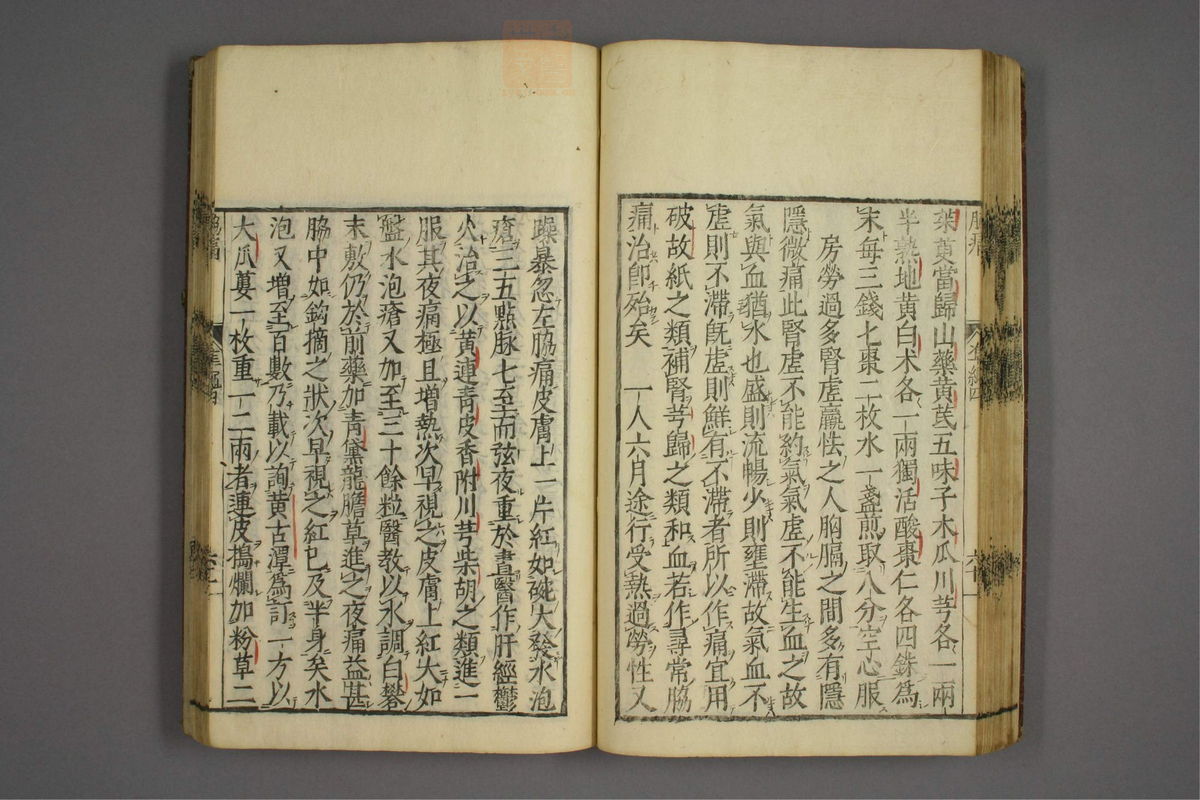 茱萸當歸山藥黃芪五味子木瓜川芎各一兩
半熟地黃白术各一兩獨活酸棗仁各四銖爲
末每三錢七棗二枚水一盞煎取八分空心服
房勞過多腎虛羸怯之人胸膈之間多有隱
隱微痛此腎虛不能約氣氣虛不能生血之故
氣與血猶水也盛則流暢少則壅滯故氣血不
虛則不滯旣虛則鮮有不滯者所以作痛宜用
破故紙之類補腎芎歸之類和血若作尋常脇
痛治卽殆矣　一人六月途行受熱過勞性又
躁暴忽左脇痛皮膚上一片紅如碗大發水泡
瘡三五點脉七至而弦夜重於晝醫作肝經鬱
火治之以黃連青皮香附川芎柴胡之類進一
服其夜痛極且增熱次早視之皮膚上紅大如
盤水泡瘡又加至三十餘粒醫教以水調白礬
末敷仍於前藥加青黛龍膽草進之夜痛益甚
脇中如鈎摘之狀次早視之紅已及半身矣水
泡又增至百數乃載以詢黃古潭爲訂一方以
大瓜蔞一枚重一二兩者連皮搗爛加粉草二
脇痛